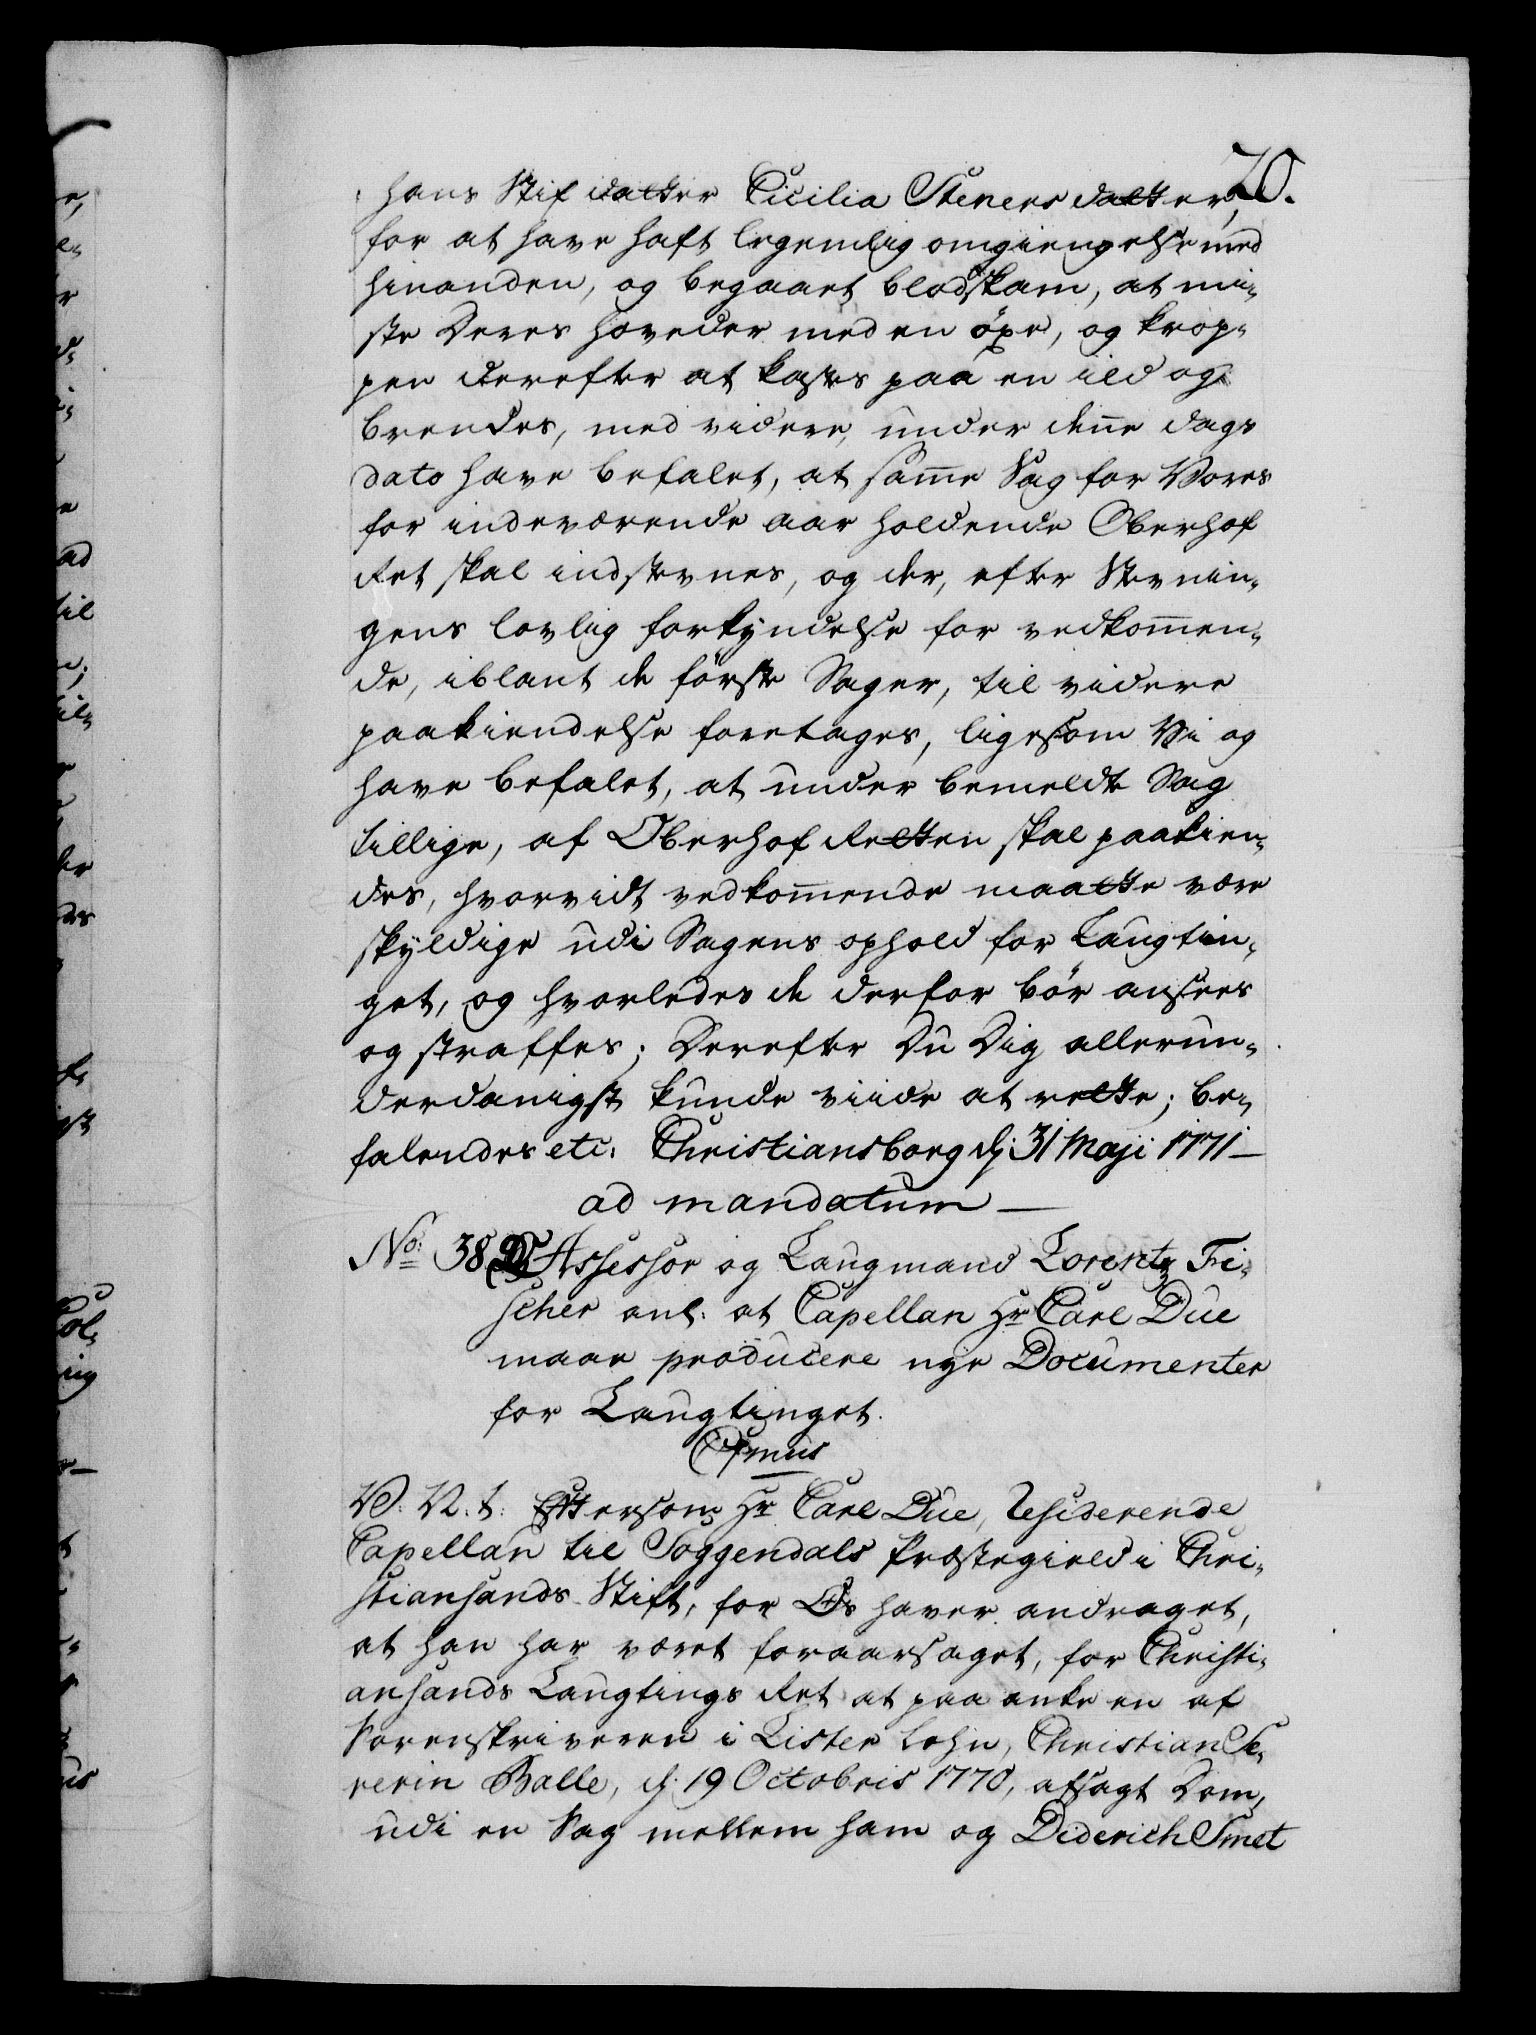 20.
hans Stif datter Cicilia Steners datter,
for at have haft legemlig omgiengelse med
hinanden, og begaaet blodskam, at mi-
ste Deres hoveder med en öxe, og krop-
pen derefter at kastes paa en ild og
brendes, med videre, under denne dags
dato have befalet, at samme Sag for Vores
for indeværende aar holdende Oberhof
Ret skal indstevnes, og der, efter Stevnin-
gens lovlig forkyndelse for vedkommen-
de, iblant de förste Sager, til videre
paakiendelse foretages, ligesom Vi og
have befalet, at under bemeldte Sag
tillige, af Oberhof Retten skal paakien-
des, hvorvidt vedkommende maatte være
skyldige udi Sagens ophold for Laugtin-
get, og hvorledes de derfor bör ansees
og straffes; Derefter Du Dig allerun-
derdanigst kunde viide at rette; be-
falendes etc: Christiansborg d: 31 Maji 1771 —
ad mandatum —
No: 38 Assessor og Laugmand Lorentz Fi-
scher anl: at Capellan Hr Carl Due
maae producere nye Documenter
for Laugtinget.
C7mus
V. V. t: Eftersom Hr Carl Due, Residerende
Capellan til Soggendals Præstegield i Chri-
stiansands Stift, for Os haver andraget,
at han har været foraarsaget, for Christi-
ansands Laugtings Ret at paa anke en af
Sorenskriveren i Lister Lehn, Christian Se-
verin Balle, d: 19 Octobris 1770, afsagt Dom,
udi en Sag mellem ham og Diderich Smet